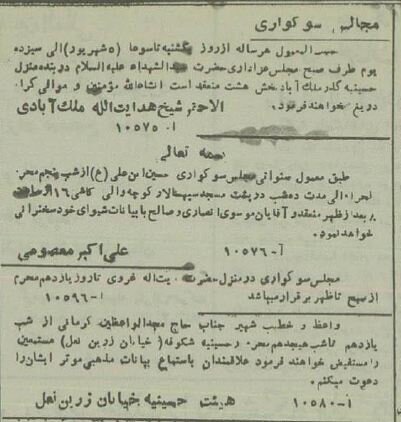 مجالس سوگواری
حسب‌المعمول هرساله از روز یکشنبه تاسوعا (۵ شهریور) الی سیزده
یوم طرف صبح مجلس عزاداری حضرت سیدالشهداء علیه‌السلام در بنده منزل
حسینیه گذر ملک آباد بخش هشت منعقد است انشاءالله مؤمنین و موالی کرا
دریغ نخواهند فرمود.
الاحقر شیخ هدایت الله ملک آبادی
آ- ۱۰۵۷۵
بسمه تعالی
طبق معمول سنواتی مجلس سوگواری حسین ابن علی (ع) از شب پنجم محرم
الحرام الی مدت ده شب در پشت مسجد سپهسالار کوچه والی کاشی ۱۶ از ساعت
۸ بعد از ظهر منعقد و آقایان موسوی انصاری و صالح با بیانات شیوای خود سخنرانی
خواهد نمود.
آ- ۱۰۵۷۶ علی اکبر معصومی
مجلس سوگواری در منزل حضرت آیت‌اله غروی تا روز یازدهم محرم
از صبح تا ظهر برقرار میباشد آ- ۱۰۵۹۶
واعظ و خطیب شهیر جناب حاج مجدالواعظین کرمانی از شب
یازدهم تا شب هیجدهم محرم در حسینیه شکوفه (خیابان زرین نعل) مستمعین
را مستفیض خواهند فرمود علاقمندان باستماع بیانات مذهبی موثر ایشان را
دعوت میکنیم.
آ- ۱۰۵۸۰ هیئت حسینیه خیابان زرین نعل